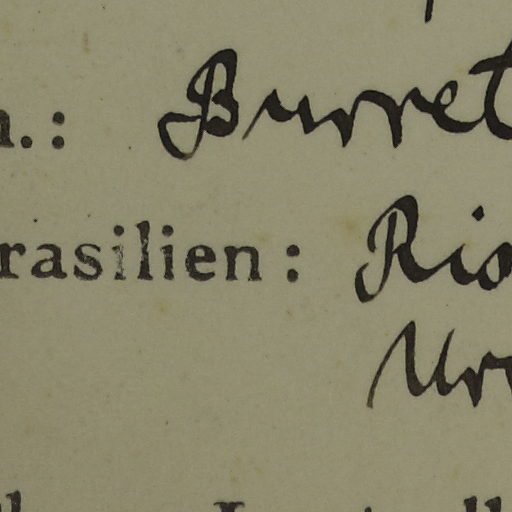 n.: Burret
rasilien: Rio
Ur